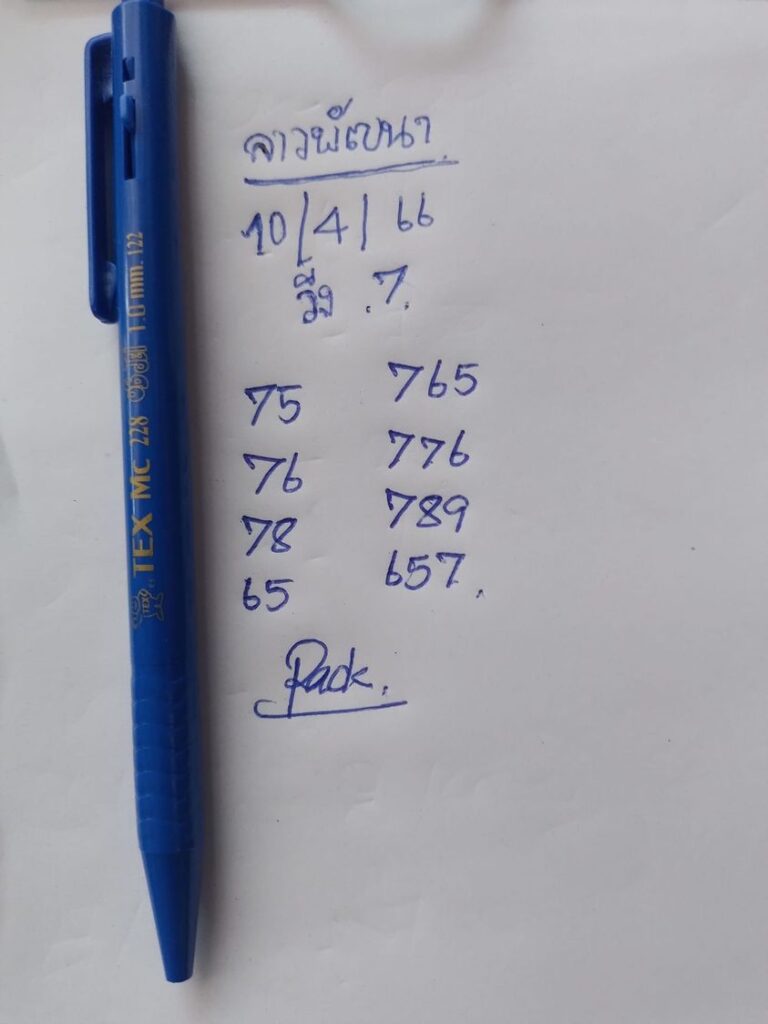 ลาวพัฒนา
10/4/66
วิ่ง .7.
75 765
76 776
78 789
65 657.
Pack.
TEX MC 228 1.0 mm. 122
TEXO